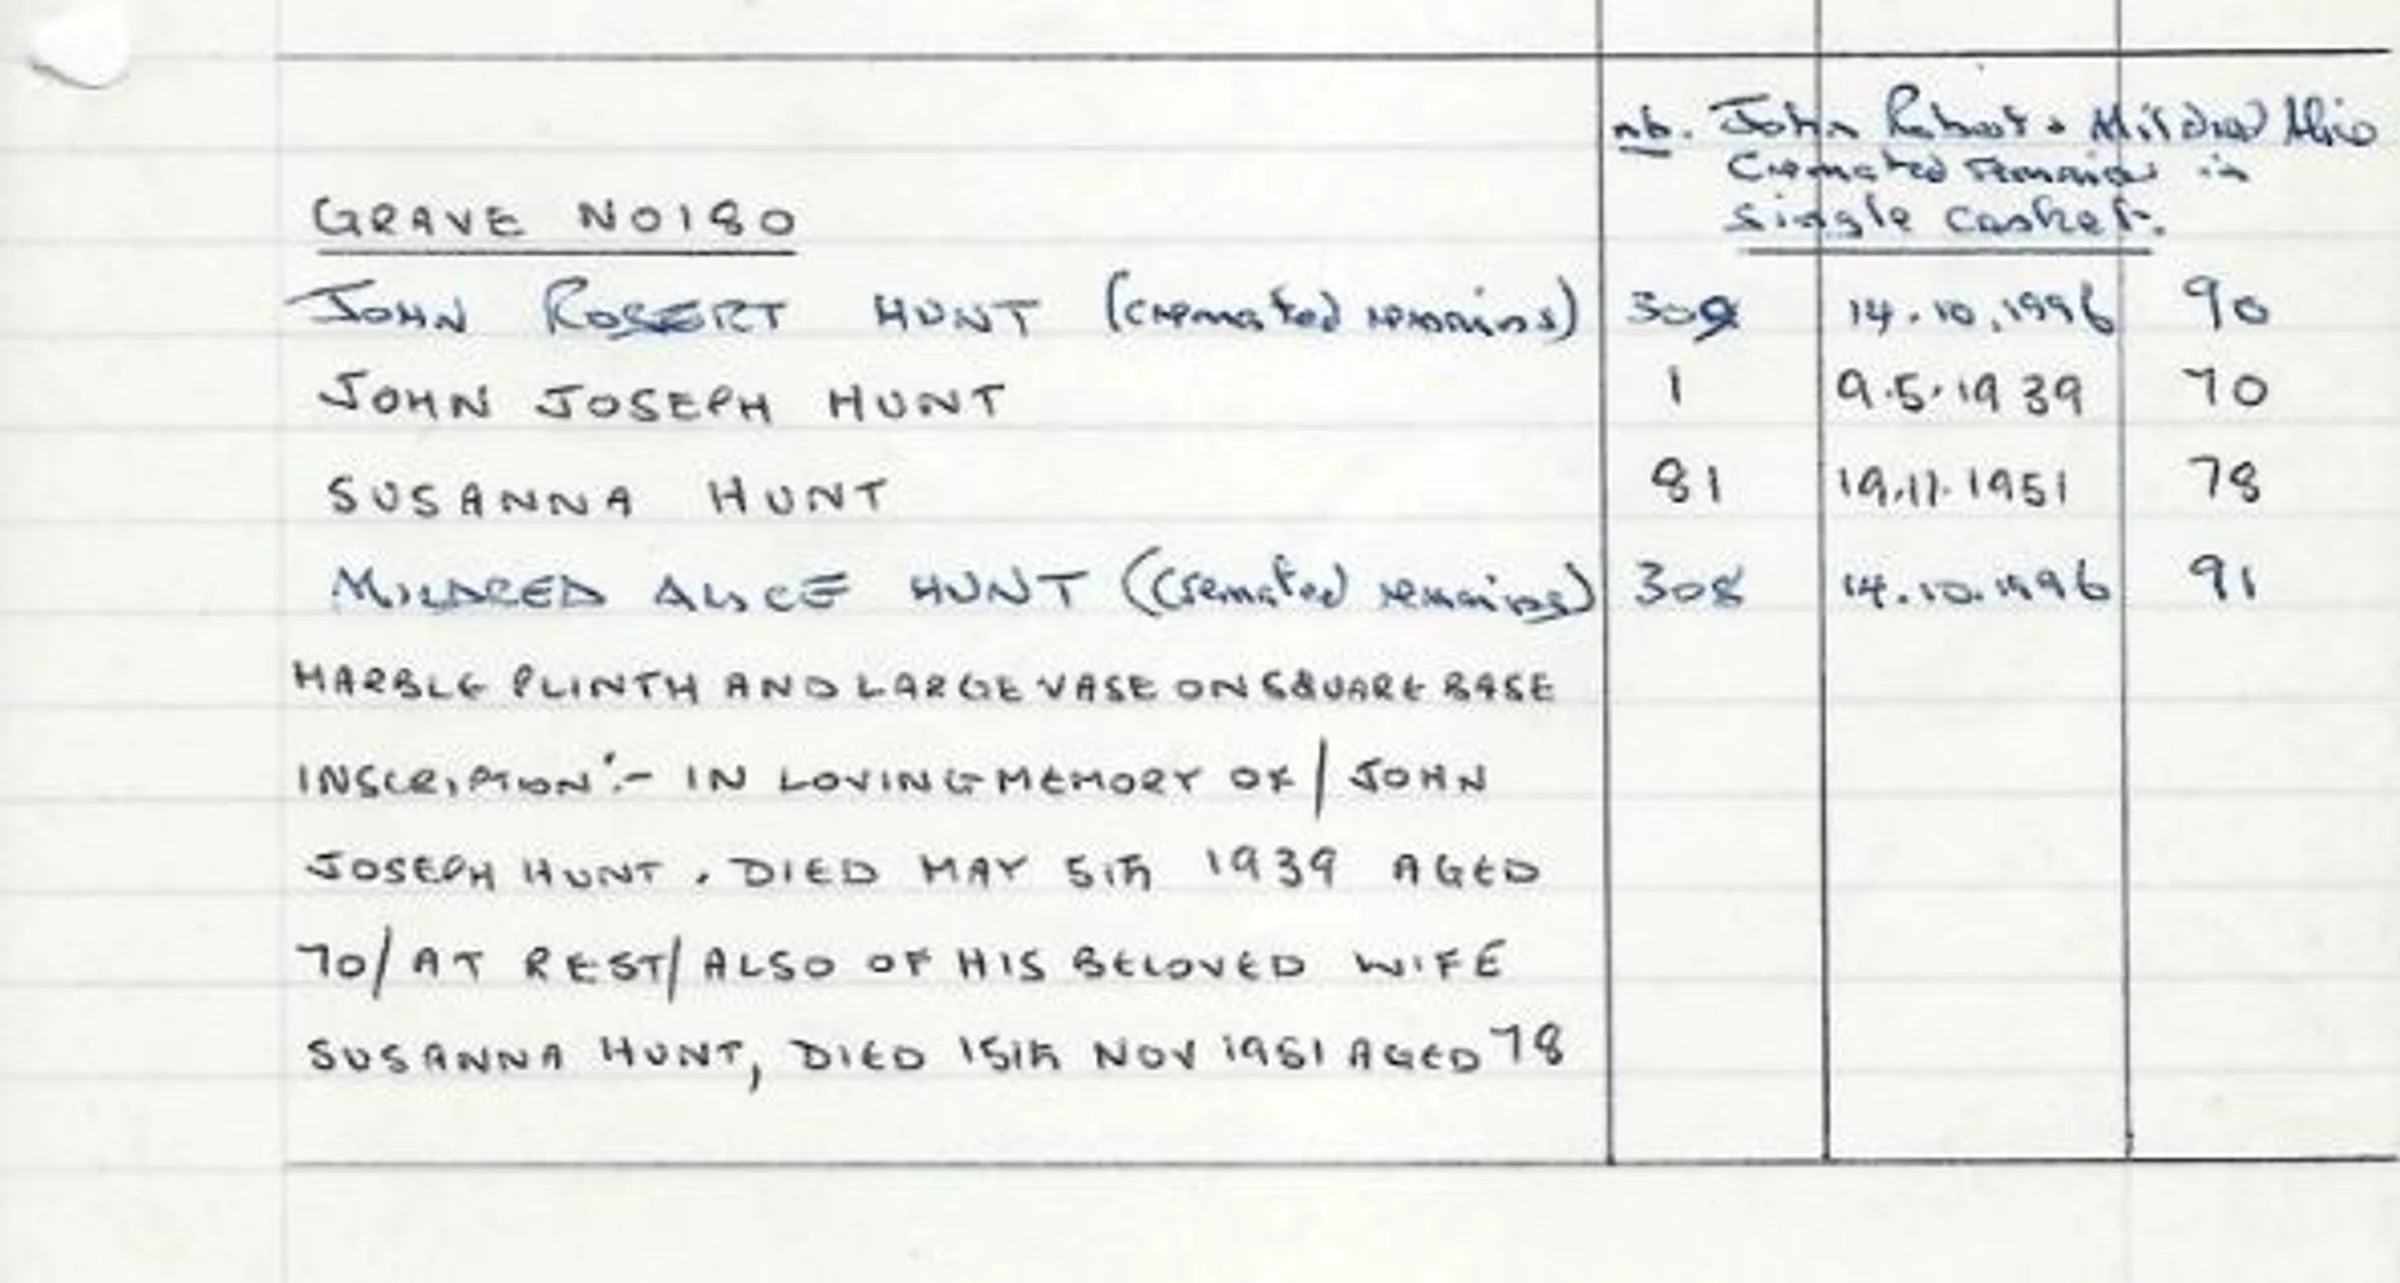 nb. John Robert + Mildred Alice
Cremated remains in
single casket.
GRAVE NO 180
JOHN ROBERT HUNT (cremated remains) 309 14.10.1996 90
JOHN JOSEPH HUNT 1 9.5.1939 70
SUSANNA HUNT 81 19.11.1951 78
MILDRED ALICE HUNT (cremated remains) 308 14.10.1996 91
MARBLE PLINTH AND LARGE VASE ON SQUARE BASE
INSCRIPTION:- IN LOVING MEMORY OF / JOHN
JOSEPH HUNT. DIED MAY 5TH 1939 AGED
70/ AT REST/ ALSO OF HIS BELOVED WIFE
SUSANNA HUNT, DIED 15TH NOV 1951 AGED 78